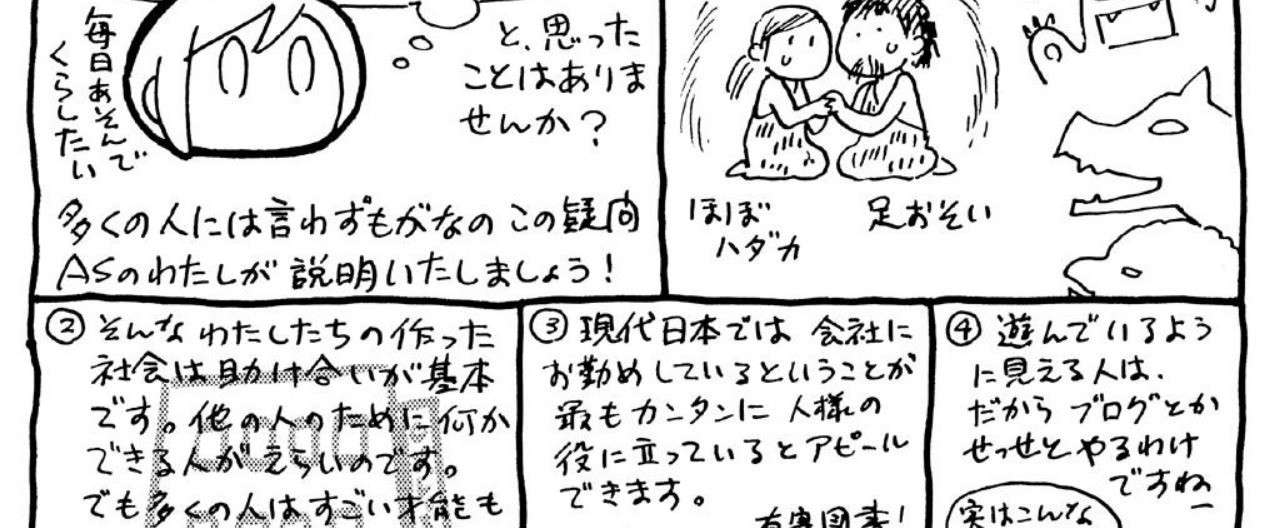 と、思った
ことはありま
せんか？
毎日あそんで
くらしたい
多くの人には言わずもがなの この疑問
ASのわたしが 説明いたしましょう！
ほぼ
ハダカ
足おそい
② そんな わたしたちの作った
社会は助け合いが基本
です。他の人のために何か
できる人がえらいのです。
でも多くの人はすごい才能も
③ 現代日本では 会社に
お勤めしているということが
最もカンタンに 人様の
役に立っているとアピール
できます。
④ 遊んでいるよう
に見える人は、
だから ブログとか
せっせと やるわけ
ですねー
実はこんな